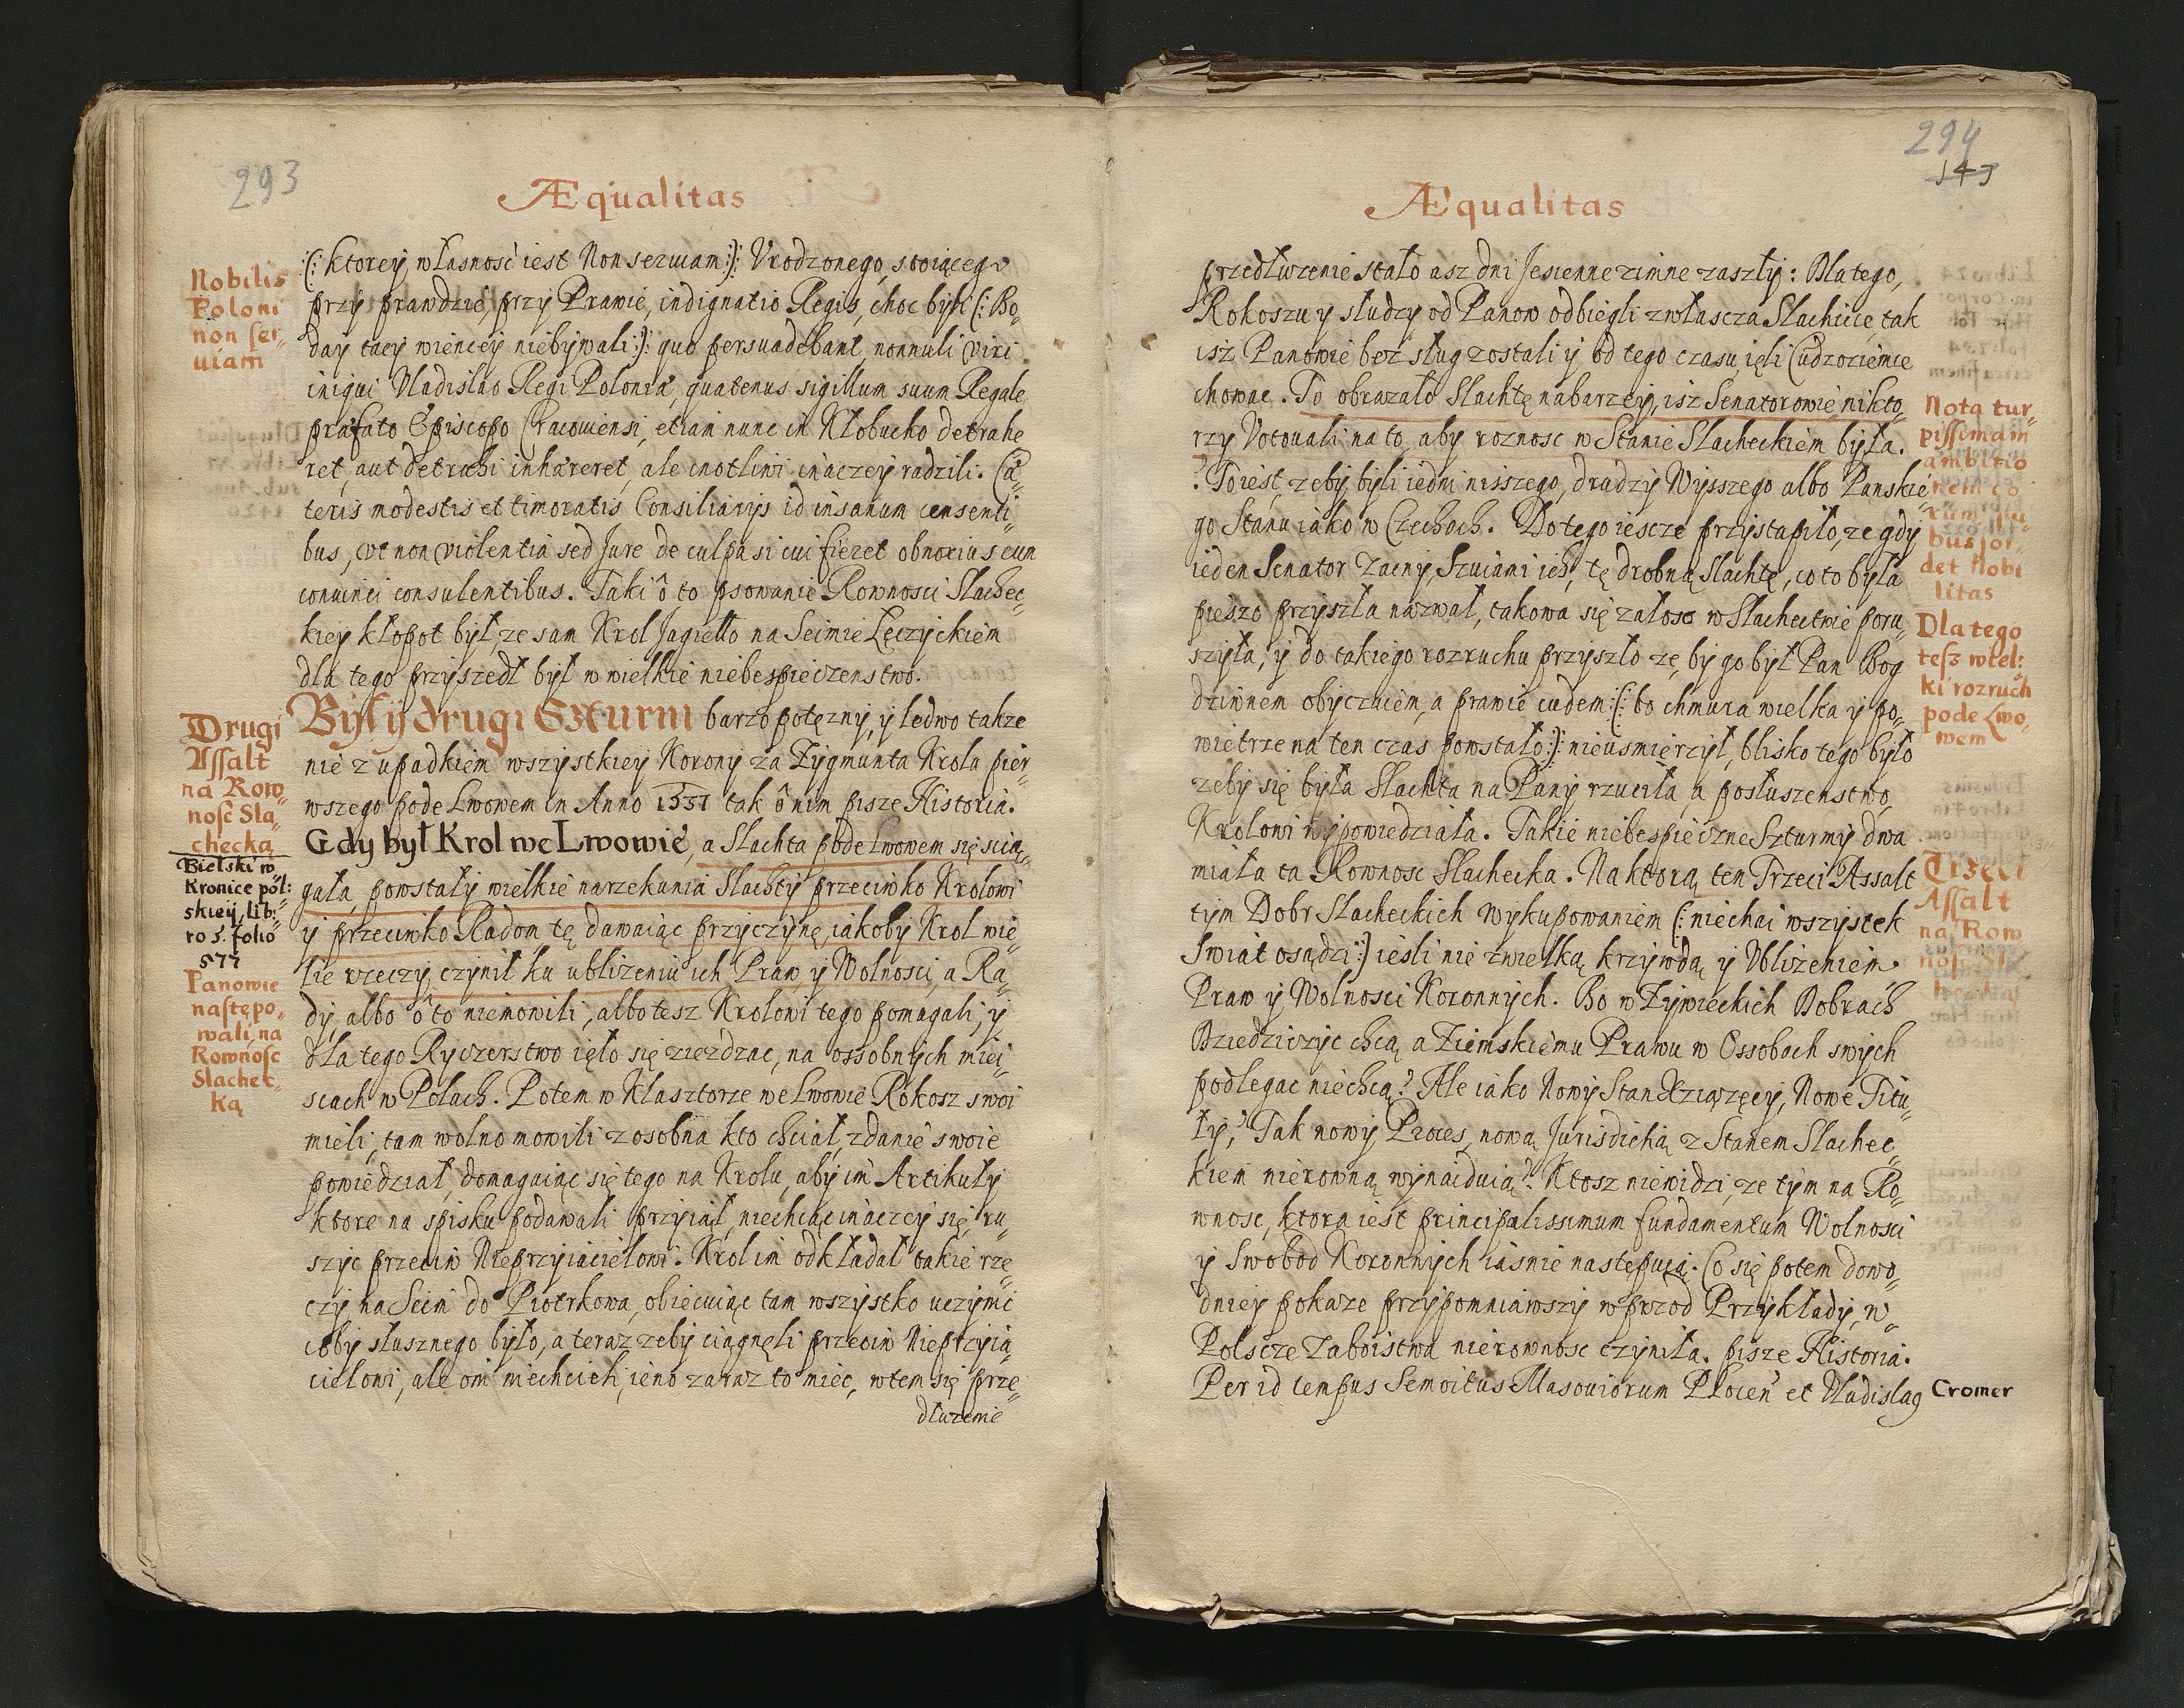 293
Æqualitas
Nobilis
Poloni
non ser„
uiam
(: ktorey własnosć iest Non seruiam :) Vrodzonego, stoiącego
przy prawdzie, przy Prawie, indignatio Regis, choc byli (: Bo„
day tacy wiencey niebywali :) quo persuadebant nonnuli viri
iniqui Vladislao Regi Poloniæ, quatenus sigillum suum Regale
præfato Episcopo Cracouiensi, etiam nunc in Kłobucko detrahe
ret, aut detrahi inhæreret, ale cnotliwi inaczey radzili. Cæ„
teris modestis et timoratis Consiliarijs id insanum censenti„
bus, vt non violentia sed Jure de culpa si cui fieret obnoxius eum
conuinci consulentibus. Taki ô to psowanie Rownosci Slachec„
kiey kłopot był ze sam Krol Jagiełło na Seimie Łęczyckiem
dla tego przyszedł był w wielkie niebespieczenstwo.
Drugi
Assalt
na Row„
nosc Sla„
checką
Były drugi Szturm barzo potęzny, y ledwo takze
nie z upadkiem wszystkiey Korony za Zygmunta Krola pier„
wszego pode Lwowem in Anno 1537 tak ô nim pisze Historia.
Gdy był Krol we Lwowie, a Slachta pode Lwowem się scią„
Bielski w
Kronice pol:
skiey, lib:
ro 5. folio
577
gała, powstały wielkie narzekania Slachty przeciwko Krolowi
y przeciwko Radom, tę dawaiąc przyczynę, iakoby Krol wie„
lie rzeczy czynił ku ublizeniu ich Praw, y Wolnosci, a Ra„
Panowie
następo„
wali na
Rownosc
Slachec„
ką
dy, albo ô to niemowili, albo tesz Krolowi tego pomagali, y
dla tego Rycerstwo ięło się ziezdzac, na ossobnych miei„
scach w Polach. Potem w Klasztorze we Lwowie Rokosz swoi
mieli, tam wolno mowili z osobna kto chciał, zdanie swoie
powiedział, domagaiąc się tego na Krolu, aby im Artikuły
ktore na spisku podawali przyiął, niechcąc inaczey się ru„
szyc przeciw Nieprzyiacielowi. Krol im odkładał takie rze„
czy na Seim do Piotrkowa, obiecuiąc tam wszystko uczynic
coby słusznego było, a teraz zeby ciągnęli przeciw Nieprzyia„
cielowi, ale oni niechcieli, ieno zaraz to miec, wtem się prze„
dłuzenie
294
143
Æqualitas
przedłuzenie stało asz dni Jesienne zimne zaszły: Dlatego,
Rokoszu y słudzy od Panow odbiegli zwłascza Slachcice, tak
isz Panowie bez sług zostali y od tego czasu ięli Cudzoziemce
chowac. To obrazało Slachtę nabarzey, isz Senatorowie nikto„
rzy Votowali na to, aby roznosc w Stanie Slacheckiem była.
Nota tur„
pissimam
ambitio
nem eo
rum qui„
bus sor„
det Nobi
litas
To iest, zeby byli iedni nisszego, drudzy Wysszego albo Panskie„
go Stanu iako w Czechach. Do tego iescze przystapiło, ze gdy
ieden Senator Zacny, Szuiami ich, tę drobną Slachtę, co to była
pieszo przyszła nazwał, takowa się załosc w Slachectwie poru„
szyła, y do takiego rozruchu przyszło ze, by go był Pan Bog
Dla tego
tesz wiel:
ki rozruch
pode Lwo„
wem
dziwnem obyczaiem, a prawie cudem (: bo chmura wielka y po„
wietrze na ten czas powstało :) nieusmierzył, blisko tego było
zeby się była Slachta na Pany rzuciła, a posłuszenstwo,
Krolowi wypowiedziała. Takie niebespieczne Szturmy dwa
miała ta Rownosc Slachecka. Na ktorą ten Trzeci Assalt
Trzeci
Assalt
na Row
tym Dobr Slacheckich wykupowaniem (: niechai wszystek
Swiat osądzi :) iesli nie zwielką krzywdą y Vblizeniem
Praw y Wolnosci Koronnych. Bo w Zywieckich Dobrach
Dziedziczyc chcą a Ziemskiemu Prawu w Ossobach swych
podlegac niechcą? Ale iako Nowy Stan Xziązęcy, Nowe Titu„
ły, Tak nowy Proces, nową Jurisdictią z Stanem Slachec„
kiem nierowną wynaiduią? Ktosz niewidzi, ze tym na Ro„
wnosc, ktora iest principalissimum fundamentum Wolnosci
y Swobod Koronnych iasnie nastepuią. Co się potem dowo„
dniey pokaze przypomniawszy wprzod Przykłady, w„
Polscze Zaboistwa nierownosc czyniła. pisze Historia.
Per id tempus Semoitus Masouiorum Plocen et Vladislaꝰ
Cromer